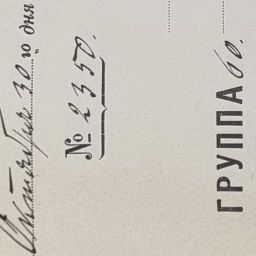 Октября 30 го дня
№ 2350.
ГРУППА 60.